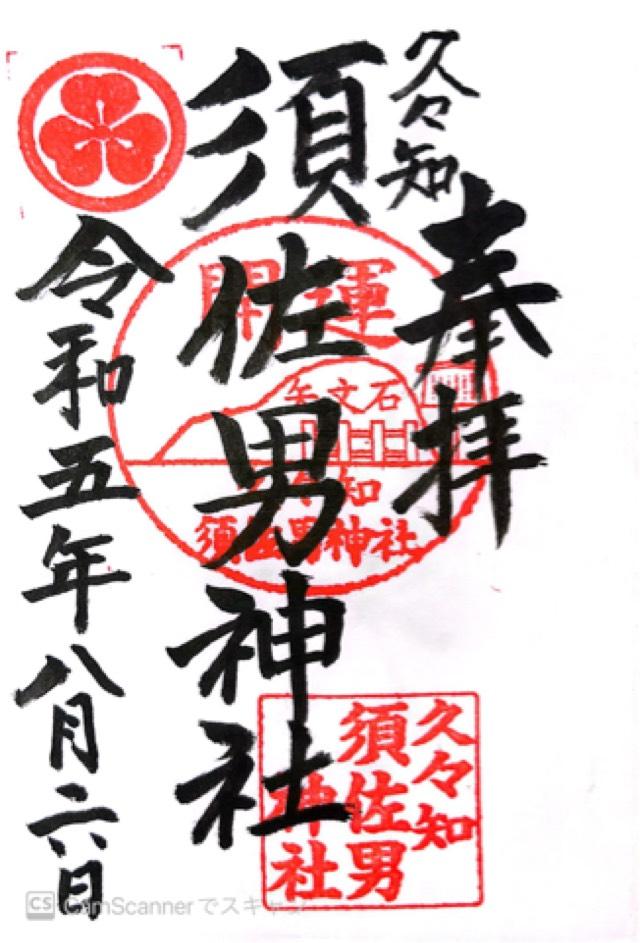 久々知
奉拝
須佐男神社
令和五年八月二六日
開運
矢文石
久々知
須佐男神社
久々知
須佐男
神社
CS CamScannerでスキャン